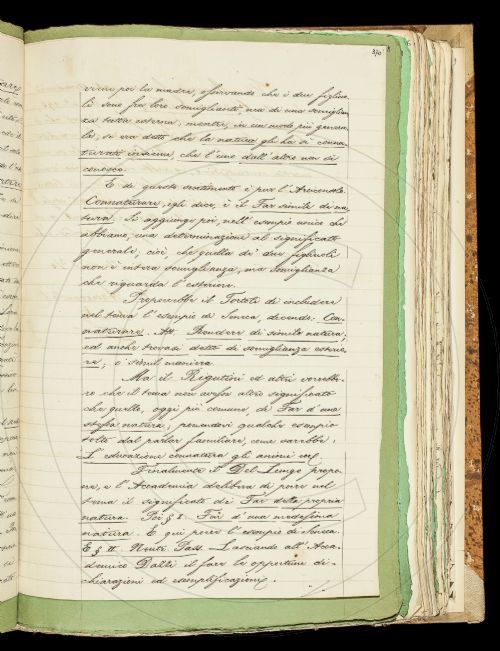 370
viene poi la madre, osservando che i due figliuo-
li sono fra loro somiglianti, ma di una somiglian-
za tutta esterna, mentre, in un modo più genera-
le, si era detto che la natura gli ha sì conna-
turati insieme, che l'uno dall'altro non si
conosce.
E di questo sentimento è pur l'Arciconsolo.
Connaturare, egli dice, è il Far simile di na-
tura. Si aggiunge poi, nell'esempio unico che
abbiamo, una determinazione al significato
generale, cioè, che quella de' due figliuoli
non è intera somiglianza, ma somiglianza
che riguarda l'esteriore.
Proporrebbe il Tortoli di includere
nel tema l'esempio di Seneca, dicendo: Con-
naturare. Att. Rendere di simile natura;
ed anche trovasi detto di somiglianza esterio-
re; o simil maniera.
Ma il Rigutini ed altri vorrebbe-
ro che il tema non avesse altro significato
che quello, oggi più comune, di Far d'una
stessa natura; ponendovi qualche esempio
tolto dal parlar familiare, come sarebbe:
L'educazione connatura gli animi ec.
Finalmente il Del-Lungo propo-
ne, e l'Accademia delibera di porre nel
tema il significato di Far della propria
natura. Poi § I. Far d'una medesima
natura. E qui porre l'esempio di Seneca.
E § II. Neutr. Pass. Lasciando all'Acca-
demico Dalbi il fare le opportune di-
chiarazioni ed esemplificazioni.